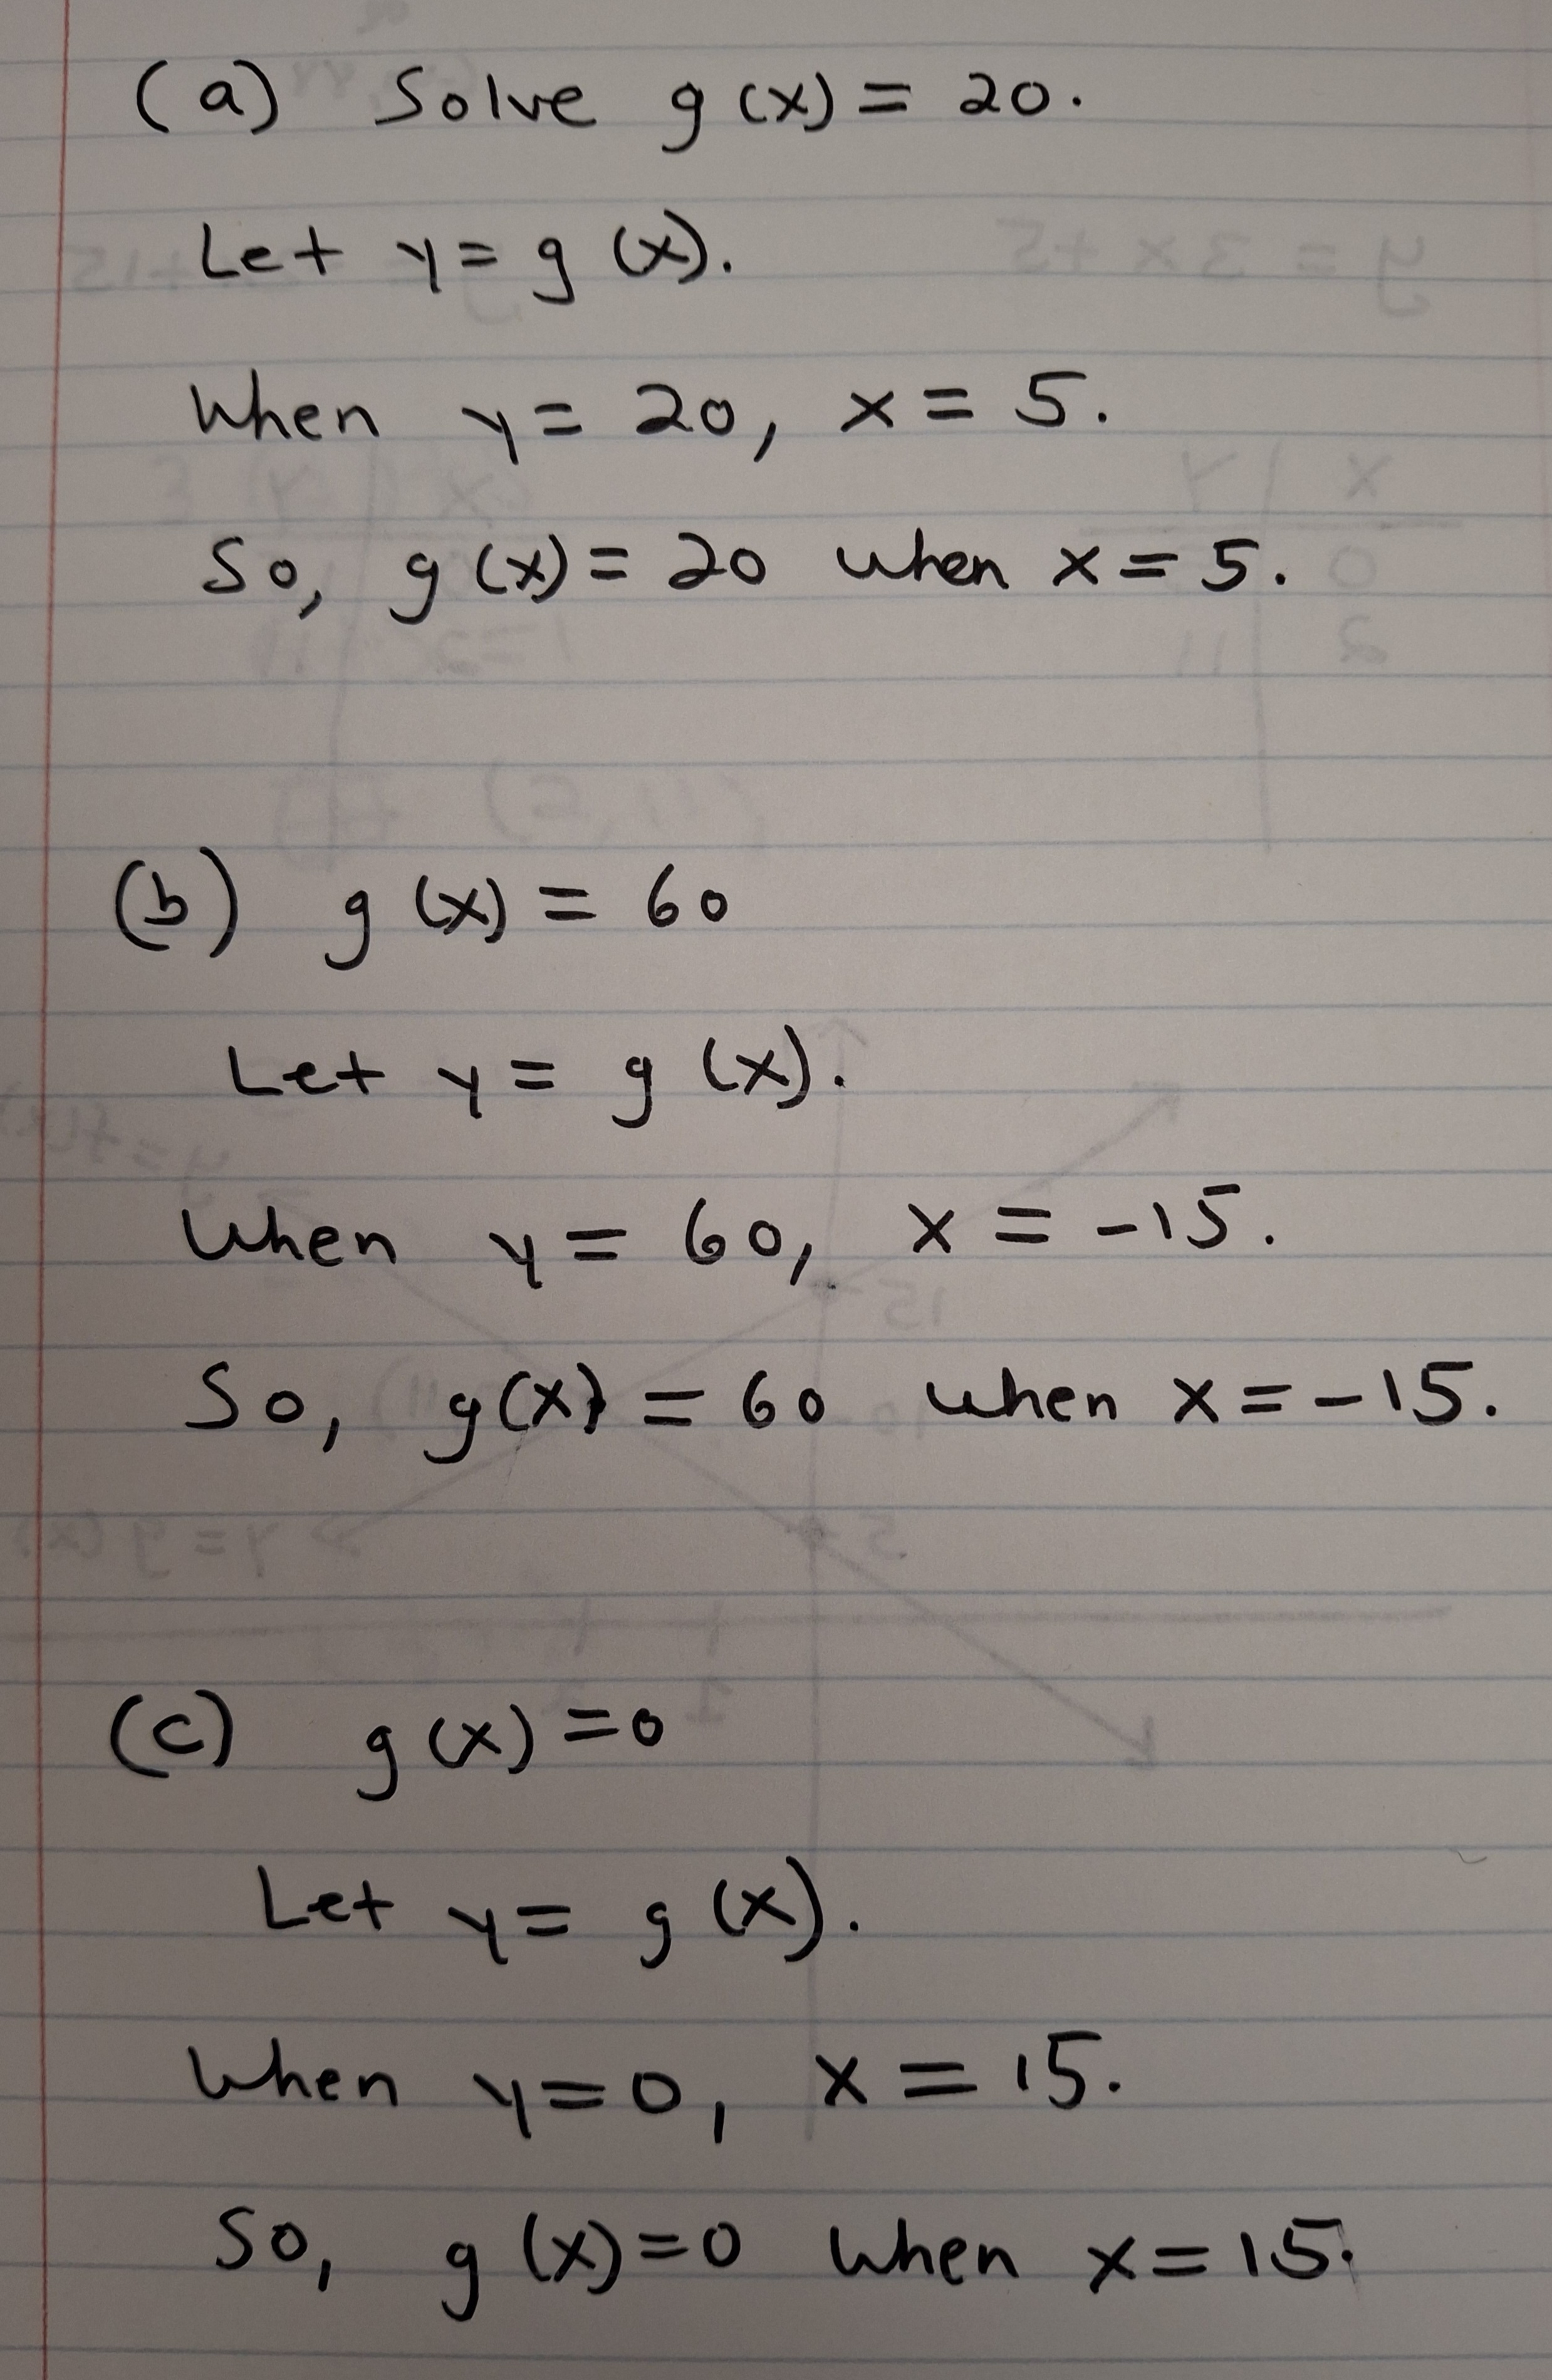 (a) Solve g(x) = 20.
Let y = g(x).
When y = 20, x = 5.
So, g(x) = 20 when x = 5.
(b) g(x) = 60
Let y = g(x).
When y = 60, x = -15.
So, g(x) = 60 when x = -15.
(c) g(x) = 0
Let y = g(x).
When y = 0, x = 15.
So, g(x) = 0 when x = 15.